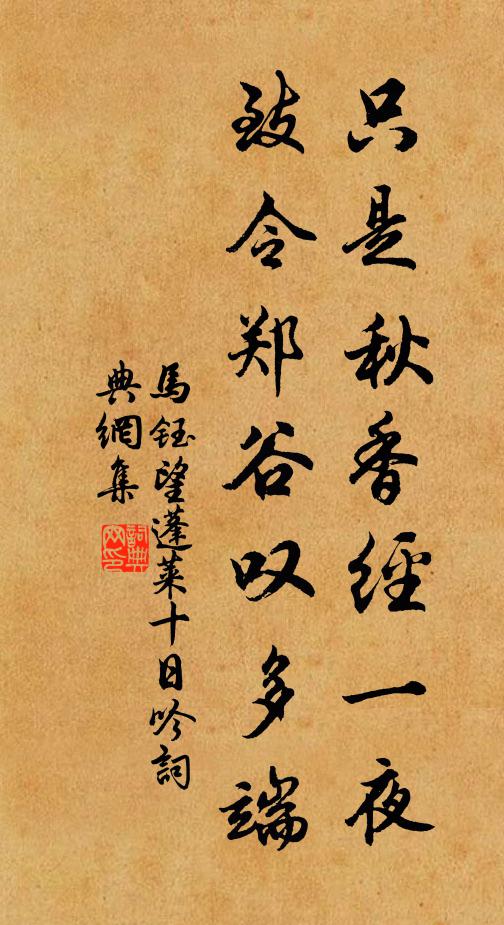 只是秋香經一夜
致令郑谷叹多端
馬鈺望蓬萊十日吟詞
典網集
詞典網印